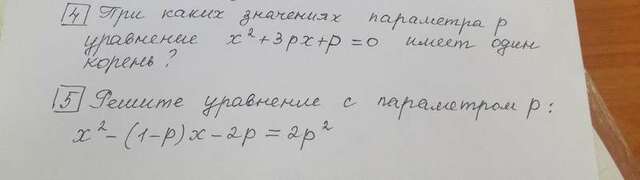 4 При каких значениях параметра р
уравнение x² + 3px + p = 0 имеет один
корень?
5 Решите уравнение с параметром р:
x² - (1-p)x - 2p = 2p²